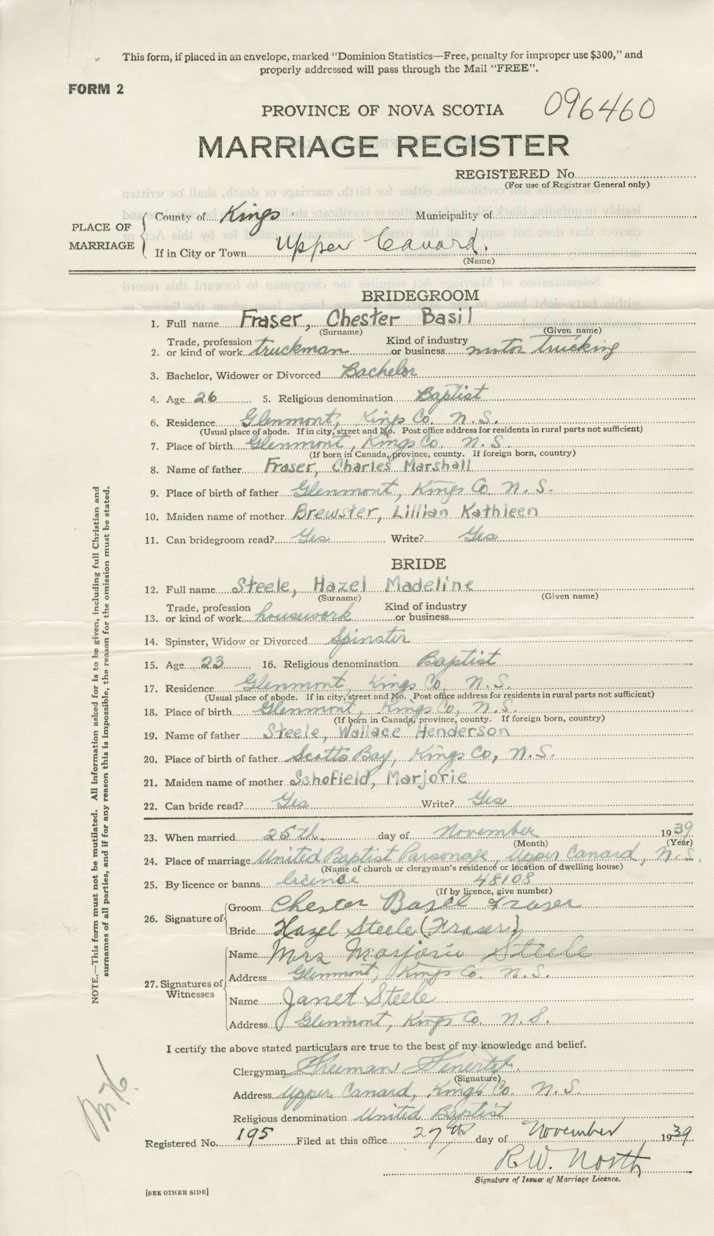 This form, if placed in an envelope, marked "Dominion Statistics—Free, penalty for improper use $300," and
properly addressed will pass through the Mail "FREE".
FORM 2
PROVINCE OF NOVA SCOTIA 096460
MARRIAGE REGISTER
REGISTERED No.
(For use of Registrar General only)
PLACE OF MARRIAGE
County of Kings. Municipality of
If in City or Town Upper Canard.
(Name)
BRIDEGROOM
1. Full name Fraser, Chester Basil
(Surname) (Given name)
2. Trade, profession or kind of work truckman Kind of industry or business motor trucking
3. Bachelor, Widower or Divorced Bachelor
4. Age 26 5. Religious denomination Baptist
6. Residence Glenmont, Kings Co. N.S.
(Usual place of abode. If in city, street and No. Post office address for residents in rural parts not sufficient)
7. Place of birth Glenmont, Kings Co. N.S.
(If born in Canada, province, county. If foreign born, country)
8. Name of father Fraser, Charles Marshall
9. Place of birth of father Glenmont, Kings Co. N.S.
10. Maiden name of mother Brewster, Lillian Kathleen
11. Can bridegroom read? Yes Write? Yes
BRIDE
12. Full name Steele, Hazel Madeline
(Surname) (Given name)
13. Trade, profession or kind of work housework Kind of industry or business
14. Spinster, Widow or Divorced Spinster
15. Age 23 16. Religious denomination Baptist
17. Residence Glenmont, Kings Co. N.S.
(Usual place of abode. If in city, street and No. Post office address for residents in rural parts not sufficient)
18. Place of birth Glenmont, Kings Co. N.S.
(If born in Canada, province, county. If foreign born, country)
19. Name of father Steele, Wallace Henderson
20. Place of birth of father Scotts Bay, Kings Co, N.S.
21. Maiden name of mother Schofield, Marjorie
22. Can bride read? Yes Write? Yes
23. When married 25th day of November 1939
(Month) (Year)
24. Place of marriage United Baptist Parsonage, Upper Canard, N.S.
(Name of church or clergyman's residence or location of dwelling house)
25. By licence or banns licence 48108
(If by licence, give number)
26. Signature of
Groom Chester Basil Fraser
Bride Hazel Steele (Fraser)
27. Signatures of Witnesses
Name Mrs Marjorie Steele
Address Glenmont, Kings Co. N.S.
Name Janet Steele
Address Glenmont, Kings Co. N.S.
I certify the above stated particulars are true to the best of my knowledge and belief.
Clergyman
(Signature)
Address Upper Canard, Kings Co. N.S.
Religious denomination United Baptist
Registered No. 195 Filed at this office 27th day of November 1939
R.W. North
Signature of Issuer of Marriage Licence.
[SEE OTHER SIDE]
NOTE.—This form must not be mutilated. All information asked for is to be given, including full Christian and
surnames of all parties, and if for any reason this is impossible, the reason for the omission must be stated.